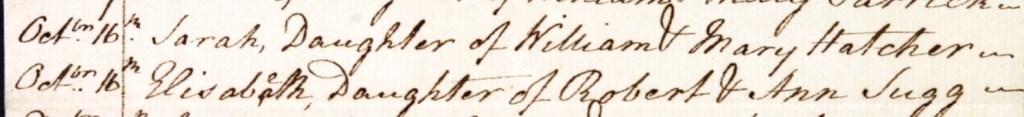 William & Mary
Octbr. 16th. Sarah, Daughter of William & Mary Hatcher
Octbr. 16th Elisabeth, Daughter of Robert & Ann Sugg